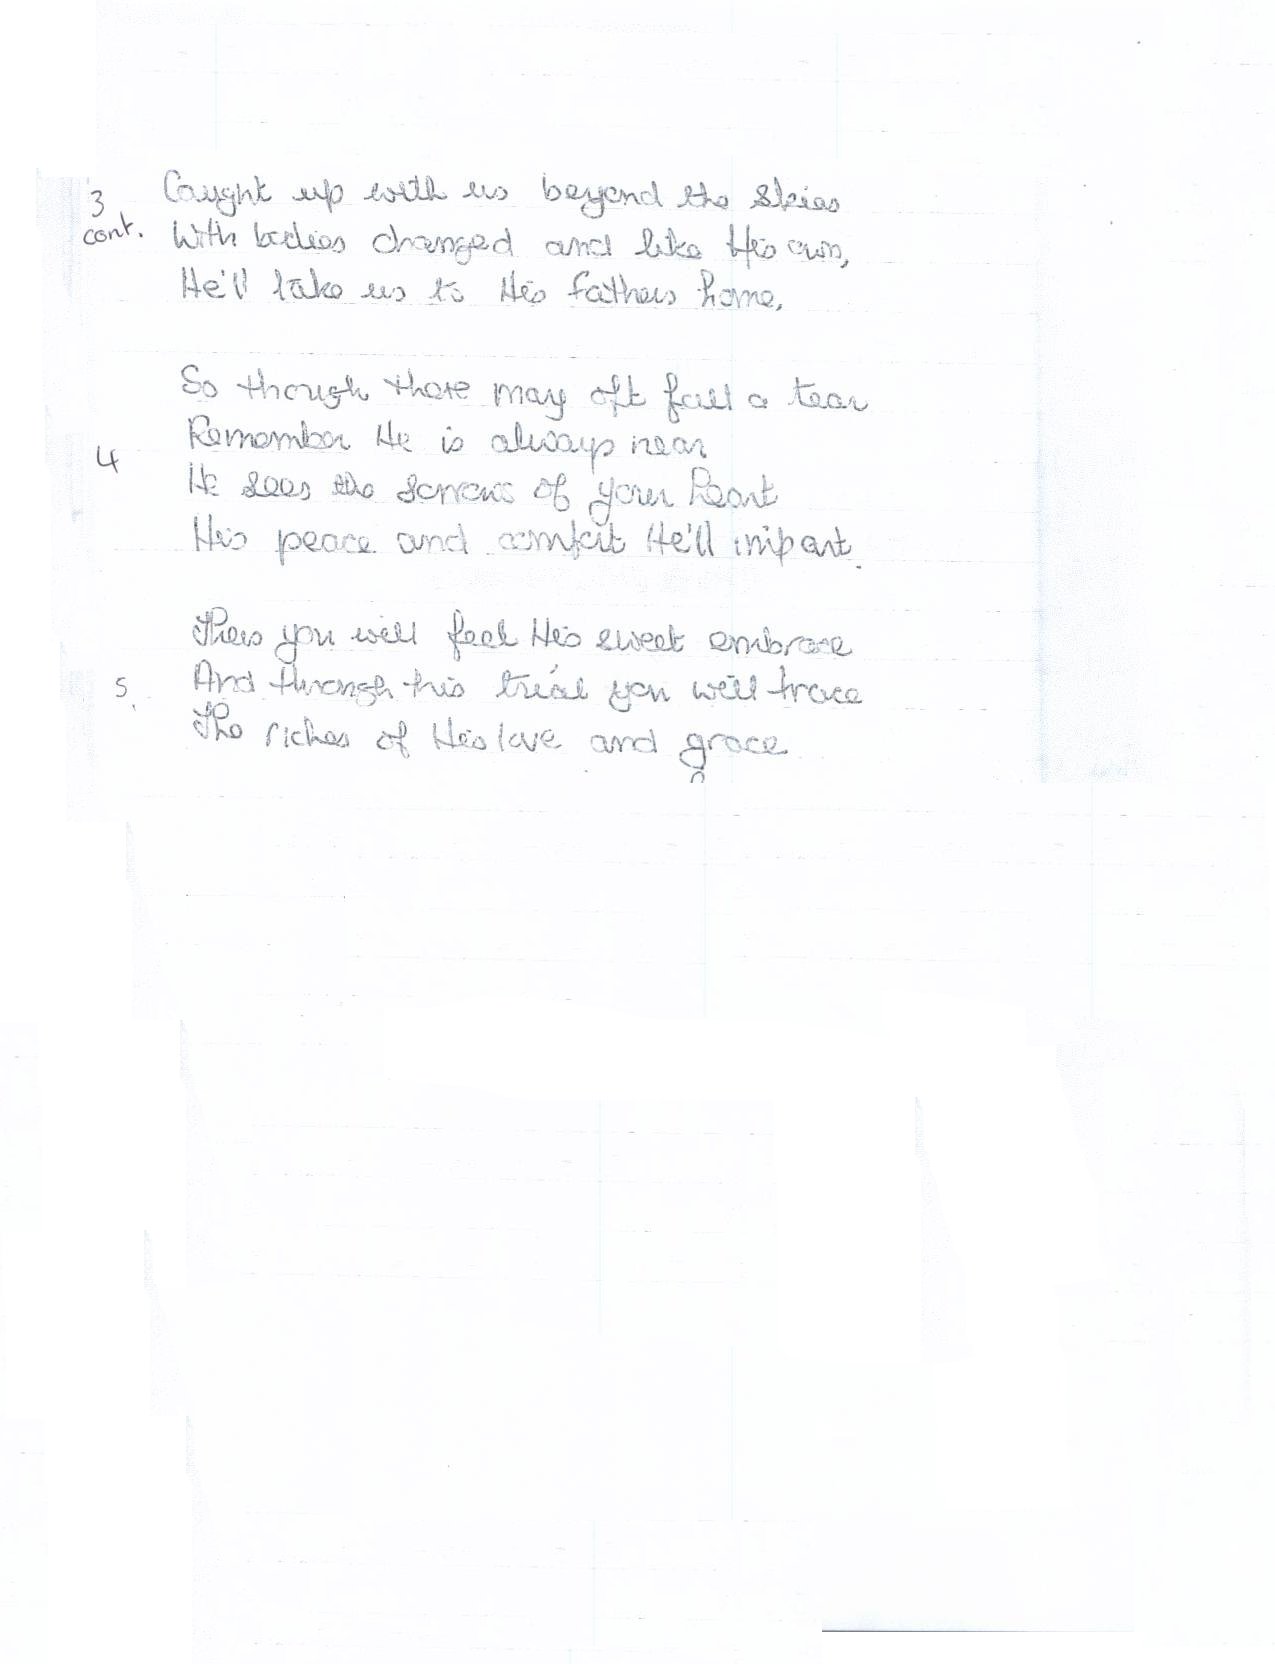 3 Caught up with us beyond the skies
cont. With bodies changed and like His own,
He'll take us to His Fathers home.
So though there may oft fall a tear
Remember He is always near
4 He sees the sorrows of your heart
His peace and comfort He'll impart.
Then you will feel His sweet embrace
5. And through this trial you will trace
The riches of His love and grace